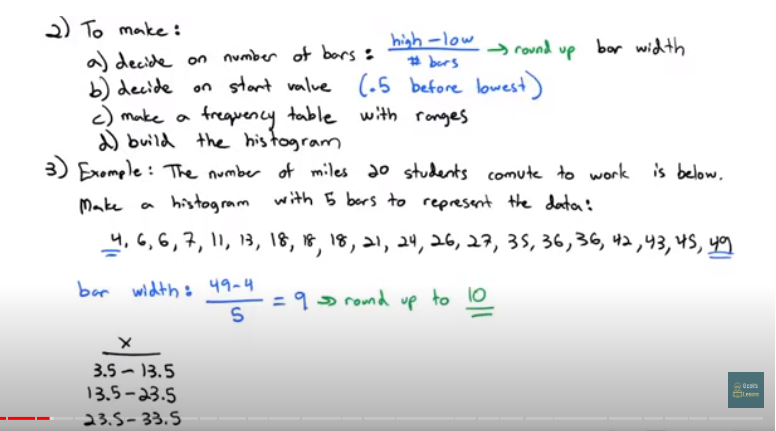 2) To make:
a) decide on number of bars: high - low / # bars → round up bar width
b) decide on start value (.5 before lowest)
c) make a frequency table with ranges
d) build the histogram
3) Example: The number of miles 20 students comute to work is below.
Make a histogram with 5 bars to represent the data:
4, 6, 6, 7, 11, 13, 18, 18, 18, 21, 24, 26, 27, 35, 36, 36, 42, 43, 45, 49
bar width: 49-4 / 5 = 9 ⇒ round up to 10
x
3.5 - 13.5
13.5 - 23.5
23.5 - 33.5